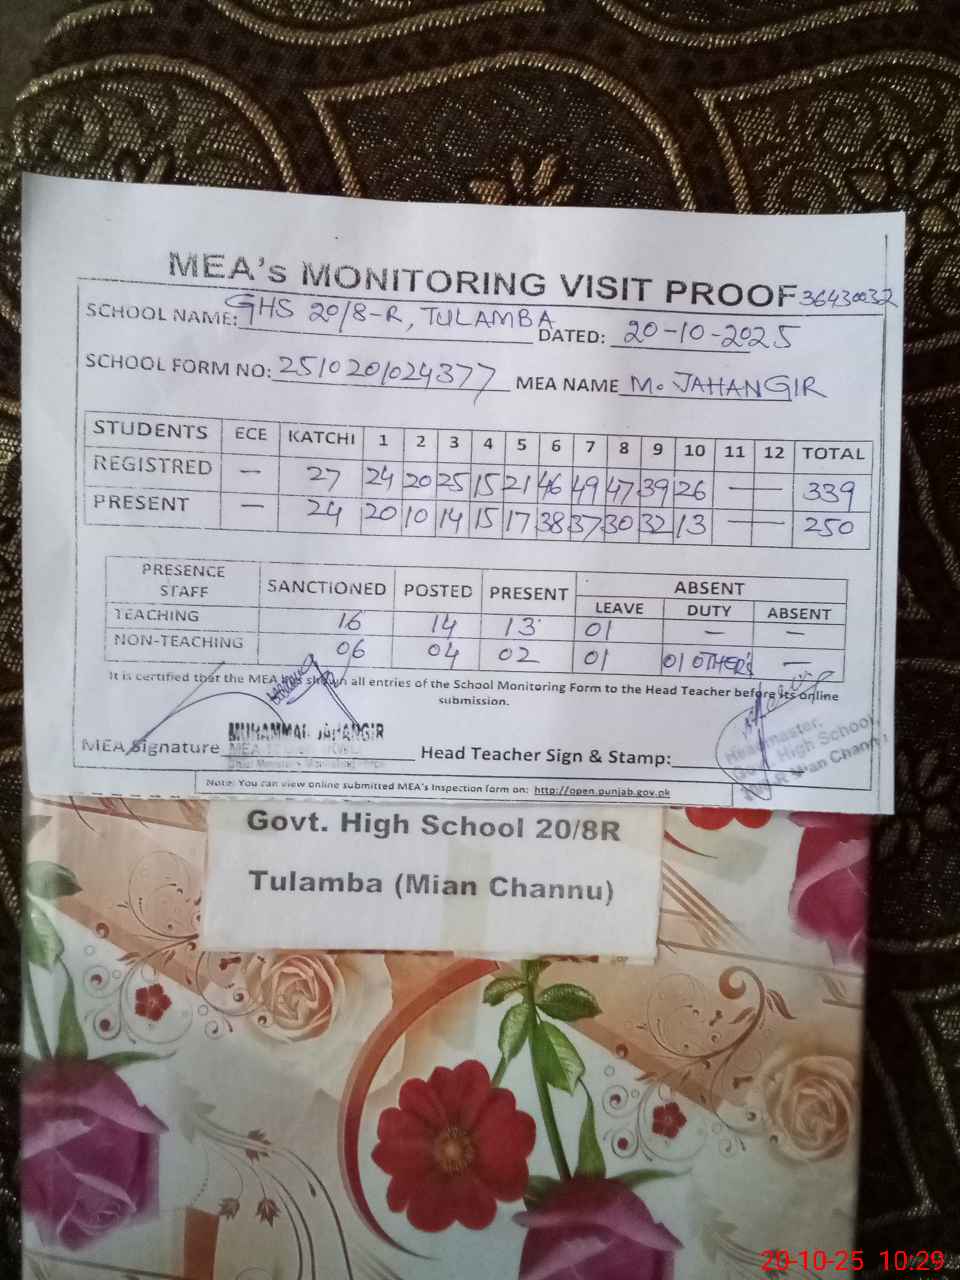 MEA's MONITORING VISIT PROOF 36430032
SCHOOL NAME: GHS 20/8-R, TULAMBA DATED: 20-10-2025
SCHOOL FORM NO: 2510201024377 MEA NAME M. JAHANGIR
STUDENTS ECE KATCHI 1 2 3 4 5 6 7 8 9 10 11 12 TOTAL
REGISTRED — 27 24 20 25 15 21 46 49 47 39 26 — — 339
PRESENT — 24 20 10 14 15 17 38 37 30 32 13 — — 250
PRESENCE STAFF SANCTIONED POSTED PRESENT ABSENT
LEAVE DUTY ABSENT
TEACHING 16 14 13 01 — —
NON-TEACHING 06 04 02 01 01 OTHER'S —
It is certified that the MEA has shown all entries of the School Monitoring Form to the Head Teacher before its online
submission.
MUHAMMAD JAHANGIR
MEA Signature Head Teacher Sign & Stamp:
Headmaster.
Govt. High School
Mian Channu
Note: You can view online submitted MEA's Inspection form on: http://open.punjab.gov.pk
Govt. High School 20/8R
Tulamba (Mian Channu)
20-10-25 10:29